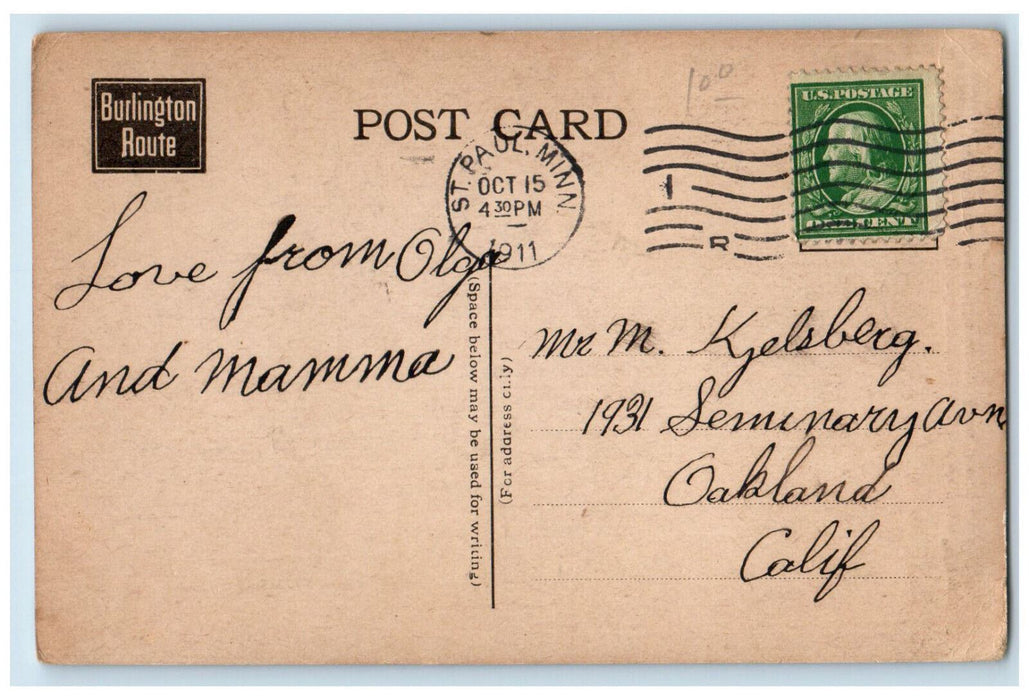 Burlington
Route
POST CARD
1 00
U.S. POSTAGE
ONE CENT
ST. PAUL, MINN.
OCT 15
4 30 PM
1911
1
R
Love from Olga
And Mamma
(Space below may be used for writing)
(For address only)
Mr M. Kjelsberg.
1931 Seminary Avn
Oakland
Calif